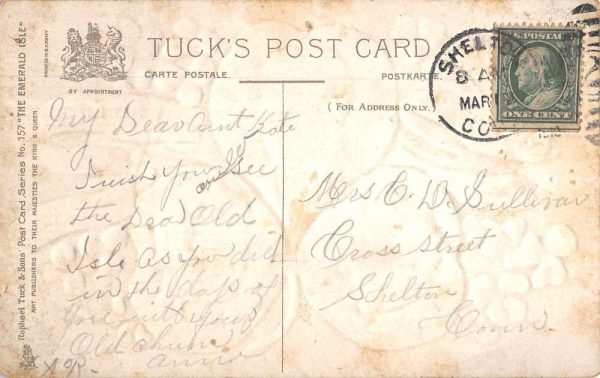 TUCK'S POST CARD
CARTE POSTALE.
POSTKARTE.
BY APPOINTMENT
(FOR ADDRESS ONLY.)
Raphael Tuck & Sons' Post Card Series No. 157 "THE EMERALD ISLE"
ART PUBLISHERS TO THEIR MAJESTIES THE KING & QUEEN
PRINTED IN SAXONY
SHELTON
8 A
MAR
CO
U.S. POSTAGE
ONE CENT
My Dear Aunt Kate
I wish you
on
See
the Dear Old
Isle as you did
in the days of
Yore with your
Old chum
Anna
Mrs C. D. Sullivan
Cross street
Shelton
Conn.